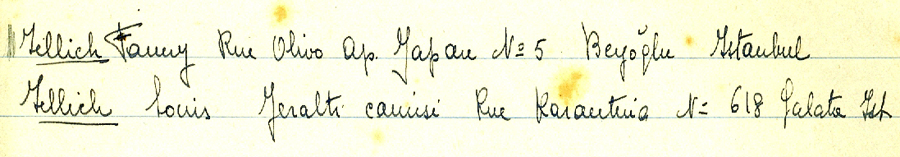 Jellich Fanny Rue Olivo Ap. Japan № 5 Beyoğlu Istanbul
Jellich Louis Jeralti camisi Rue Karantina № 618 Galata Ist